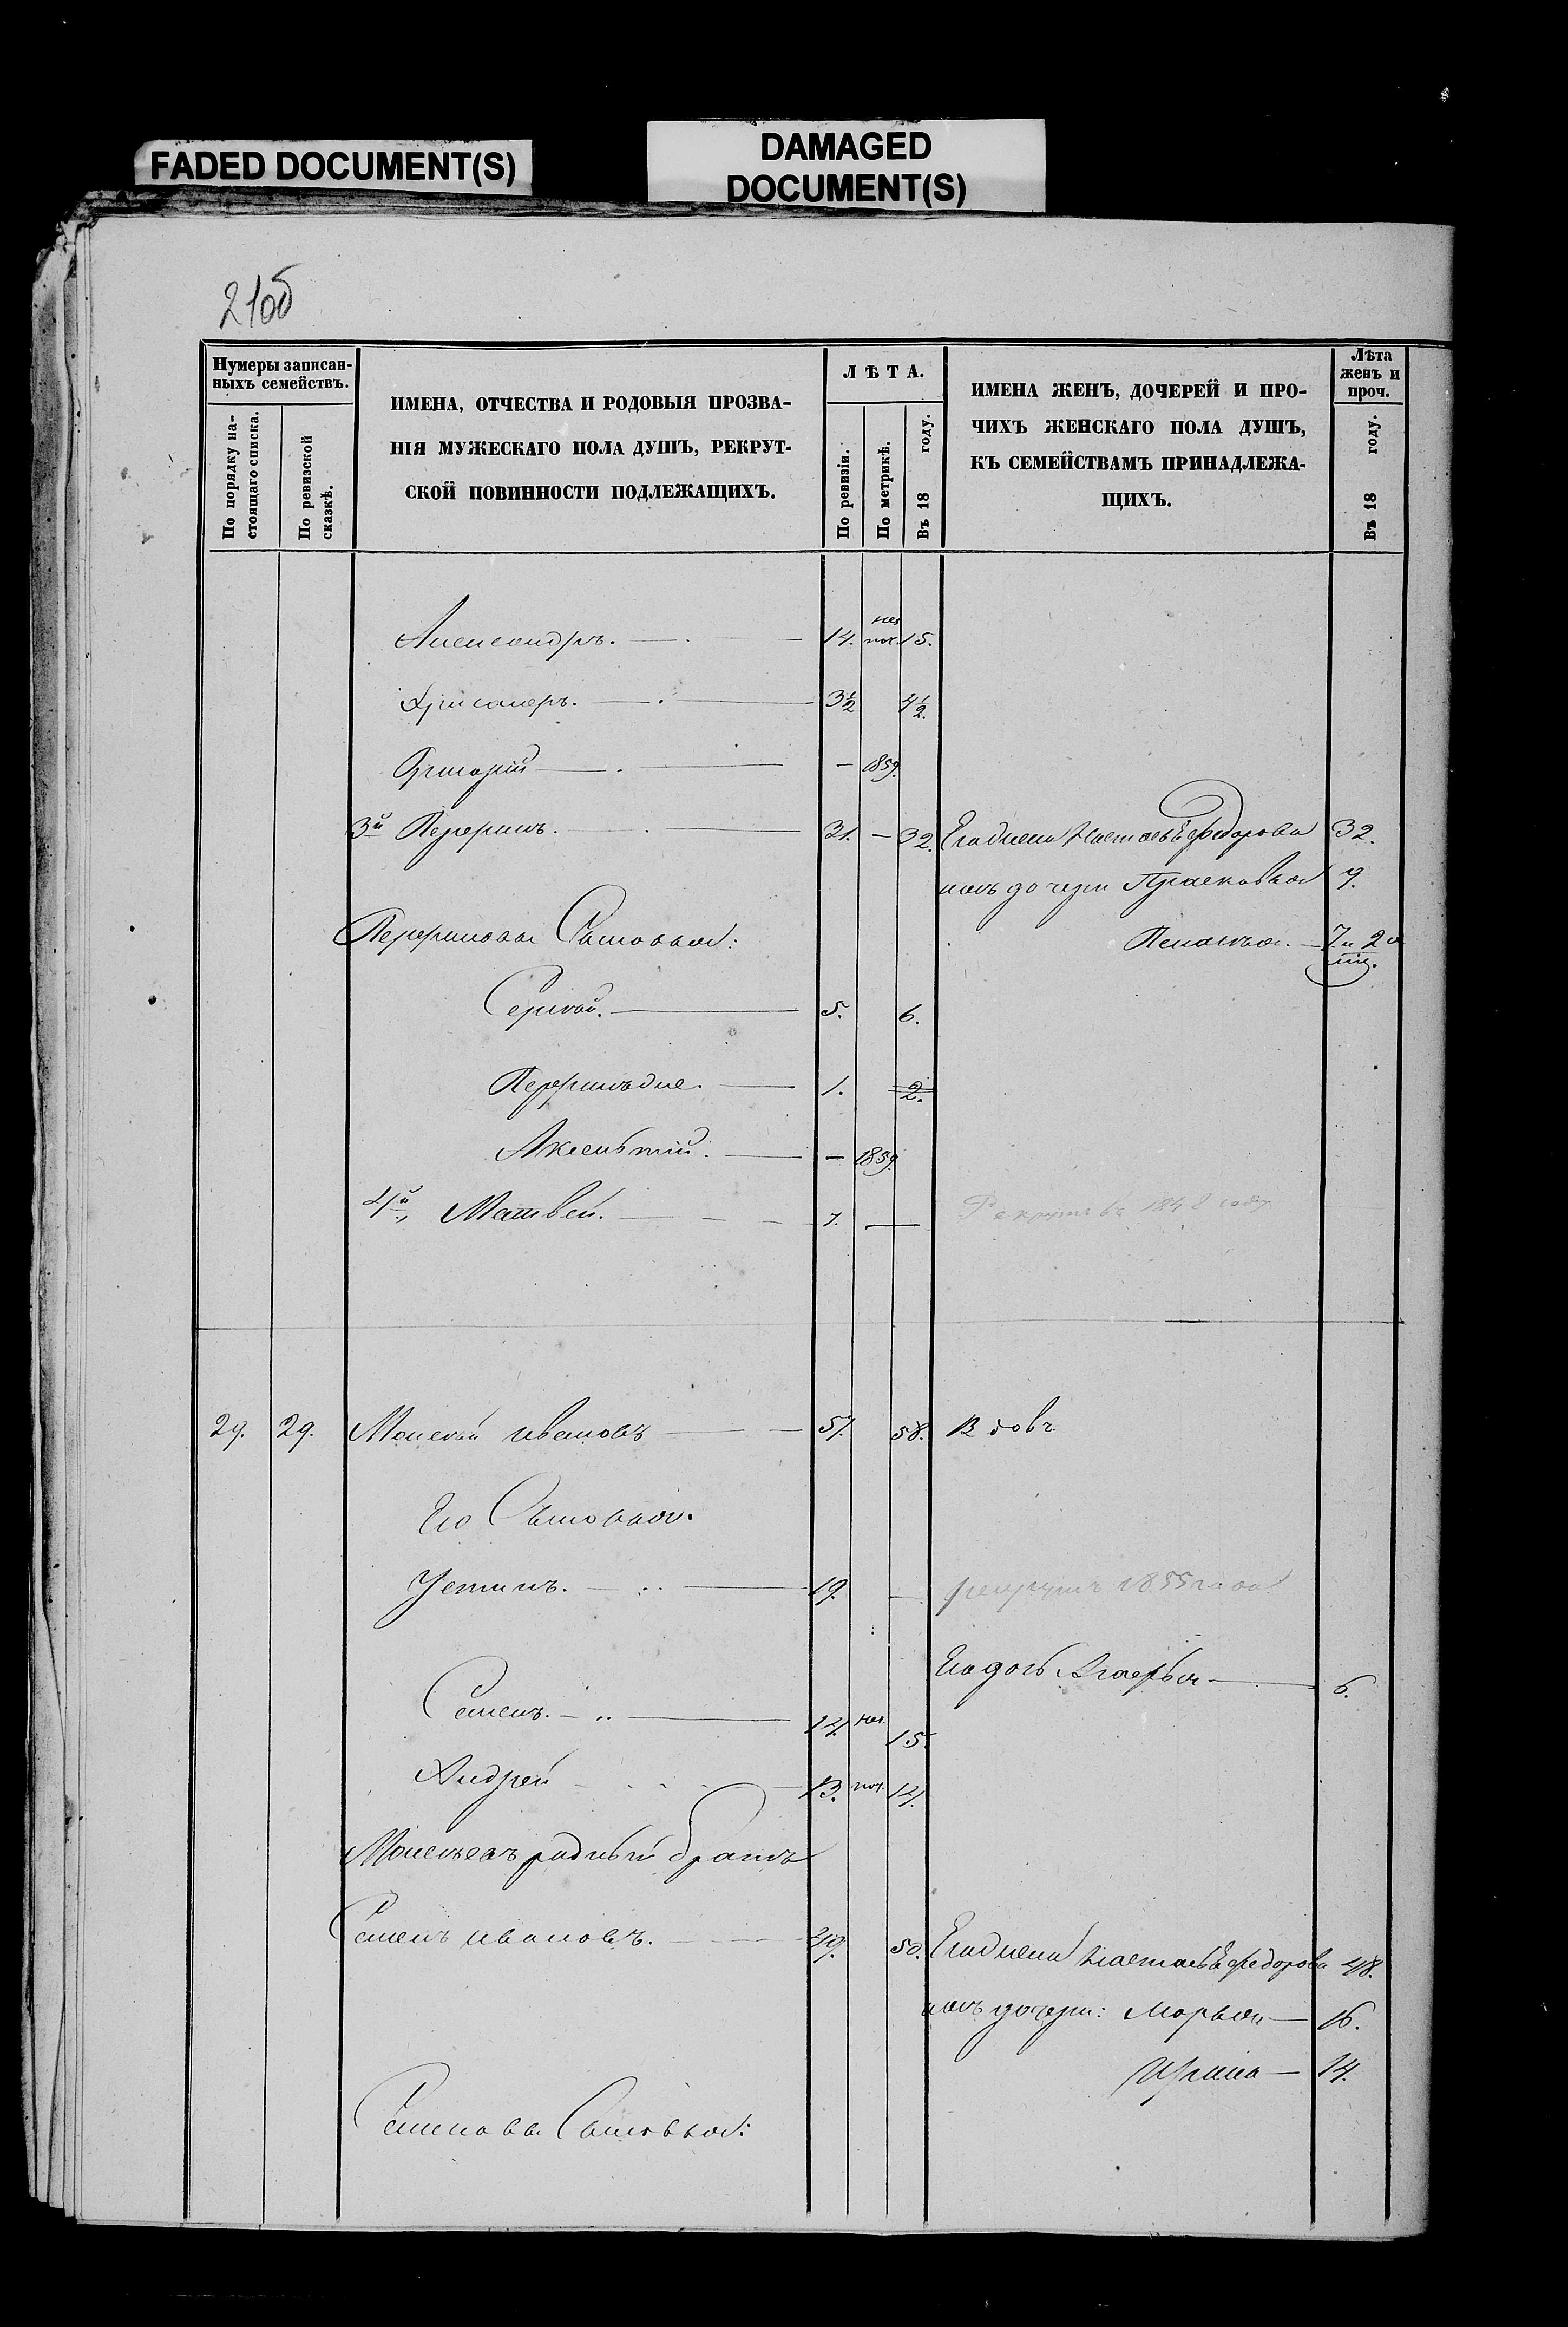 FADED DOCUMENT(S)
DAMAGED
DOCUMENT(S)
21об
Нумеры записан-
ныхъ семействъ.
По порядку на-
стоящаго списка.
По ревизской
сказкѣ.
ИМЕНА, ОТЧЕСТВА И РОДОВЫЯ ПРОЗВА-
НІЯ МУЖЕСКАГО ПОЛА ДУШЪ, РЕКРУТ-
СКОЙ ПОВИННОСТИ ПОДЛЕЖАЩИХЪ.
ЛѢТА.
По ревизіи.
По метрикѣ.
Въ 18 году.
ИМЕНА ЖЕНЪ, ДОЧЕРЕЙ И ПРО-
ЧИХЪ ЖЕНСКАГО ПОЛА ДУШЪ,
КЪ СЕМЕЙСТВАМЪ ПРИНАДЛЕЖА-
ЩИХЪ.
Лѣта
женъ и
проч.
Въ 18 году.
Александръ. 14. 15.
3½ 4½.
Григорій — 1859.
3й 31. — 32. Его жена Настасья Федорова 32.
ихъ дочери Прасковья 9.
Сыновья:
7. и 2
Сергѣй. 5. 6.
1. 2.
Аксентій. — 1859.
4й, Матвей. 7. — Рекрутъ въ 1848 году
29. 29. Моисей Ивановъ 57. 58. Вдовъ
Его Сыновья.
Устинъ. 19. — рекрутъ 1855 года
Его дочь 6.
Семенъ. 14. 15.
Андрей 13. 14.
Моисеевъ родный братъ
Семенъ Ивановъ. 49. 50. Его жена Настасья Федорова 48.
ихъ дочери: Марья — 16.
Ирина — 14.
Семеновы Сыновья: